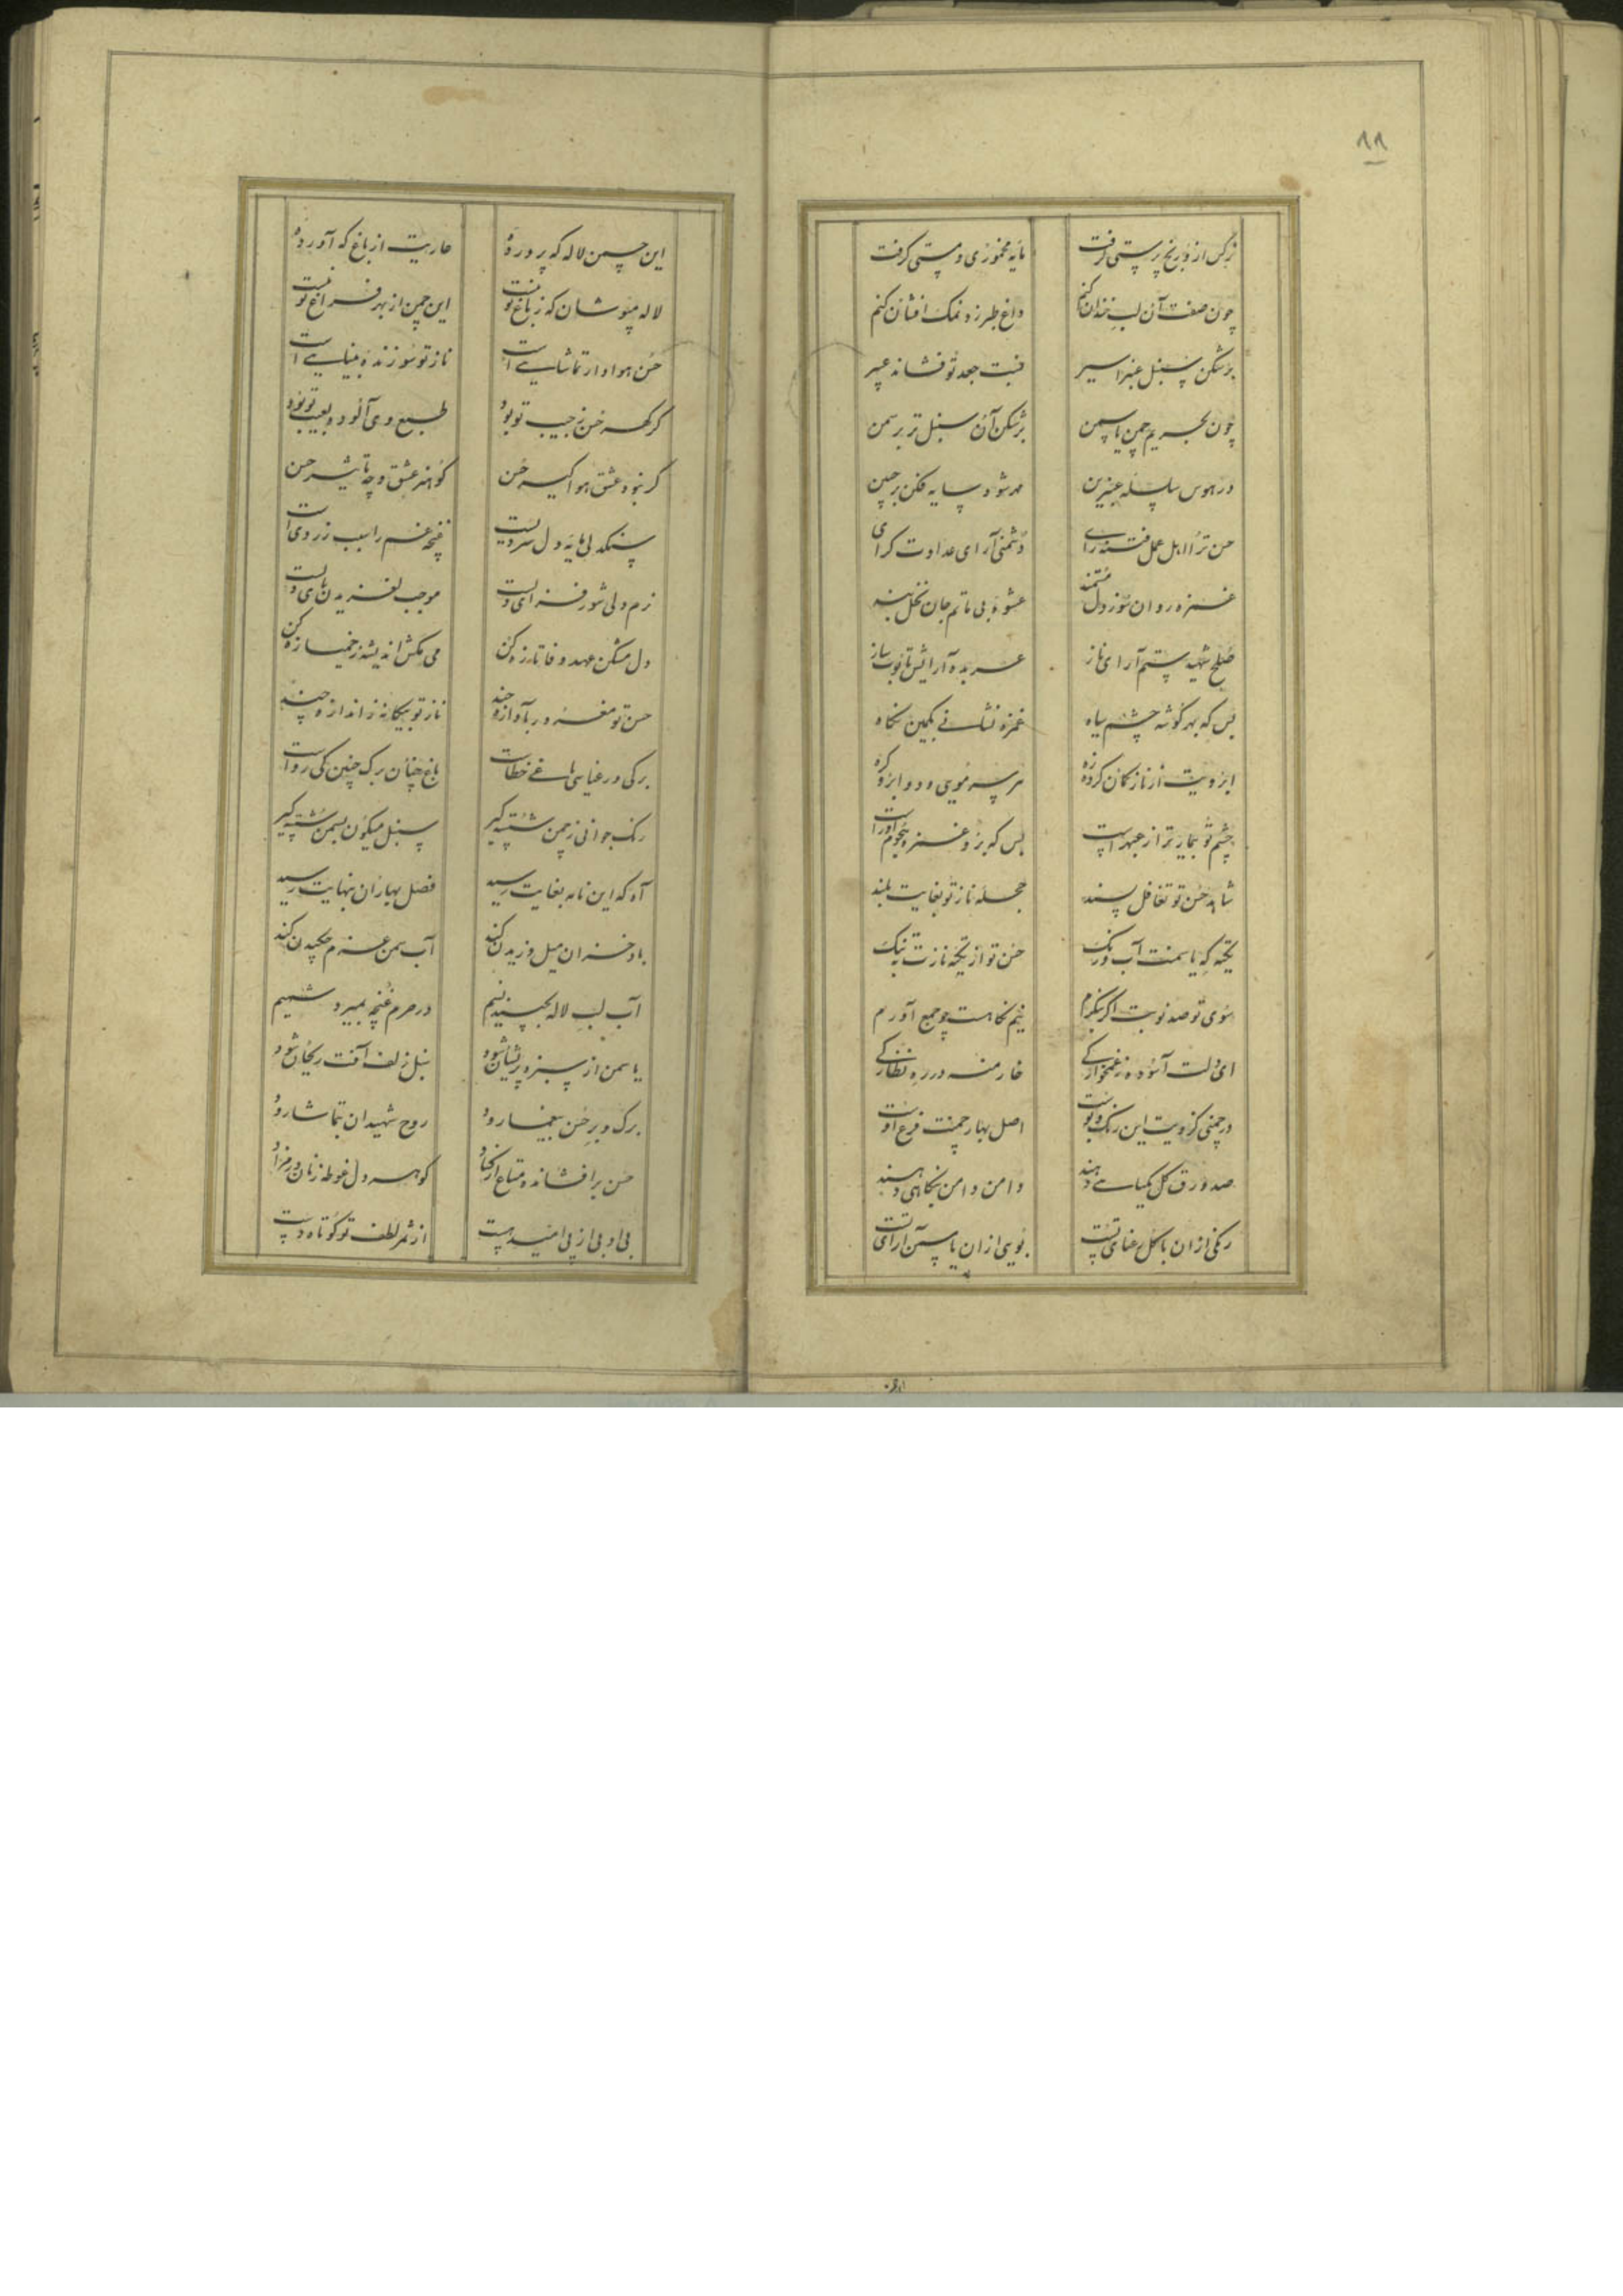 ۸۸
نرگس از و رنج پرستی گرفت مایه مخموری و مستی گرفت
چون صفت آن لب خندان کنم داغ طبرزد نمک افشان کنم
بر شکن سنبل عنبر اسیر جعد تو فشاند عبیر
چون بحریم چمن یاسمن بر شکن آن سنبل تر بر سمن
در هوس سلسله عنبرین سایه فکن بر جبین
حسن ترا اهل عمل فتنه رای دشمنی آرای عداوت گرای
غمزه روان سوز دل مستمند عشوه بی ماتم جان نخل بند
صلح شهید ستم آرای ناز عربده آرایش ساز
بس که بهر گوشه چشم سیاه غمزه نشانی بکمین نگاه
ابرویت از ناز کمان کرده زه هر سر مویی و دو ابرو گره
چشم تو بیمارتر از عبهر است بس که برو غمزه
شاهد حسن تو تغافل پسند حجله ناز تو بغایت بلند
تخته که یاسمنت آب و رنگ حسن تو از تخته نازت به تنگ
سوی تو صد نوبت اگر بنگرم نیم نگاهت چو جمع آورم
ای دلت آسوده ز غمخوارگی خار منه در ره نظارگی
در چمنی کز ویت این رنگ و بوست اصل بهار چمنت فرع اوست
صد ورق گل بگیاهی دهند دامن دامن بنگاهی دهند
رنگی از آن با گل رعنای تست بویی از آن یاسمن آرای تست
این چمن لاله که پرورده عاریت از باغ که آورده
لاله مپوشان که ز باغ تو نیست این چمن از بهر فراغ تو نیست
حسن هوادار تماشایی است ناز تو سوزنده بینایی است
گر گهر حسن بجیب تو بود طبع وی آلوده بعیب تو بود
گر نبود عشق هوا گیر حسن گو هنر عشق و چه تاثیر حسن
سنگدلی مایه دل سردیست غنچه غم را سبب زردی است
نرم دلی شور فزای دلست موجب لغزیدن پای دلست
دل مشکن عهد وفا تازه کن می مکش اندیشه ز خمیازه کن
حسن تو مغرور بآوازه چند ناز تو بیگانه ز اندازه چند
برگی و رعنایی باغی خطاست باغ چنان برگ چنین کی رواست
رنگ جوانی ز چمن شسته گیر سنبل میگون بسمن شسته گیر
آه که این نامه بغایت رسید فصل بهاران بنهایت رسید
باد خزان میل وزیدن کند آب سمن عزم چکیدن کند
آب لب لاله بچسبد نسیم در حرم غنچه بمیرد شمیم
یاسمن از سبزه پریشان شود سنبل زلف آفت ریحان شود
برگ و بر حسن بیغما رود روح شهیدان بتماشا رود
حسن بر افشانده متاع از کنار گوهر دل غوطه زنان در مزار
بی ادبی از پی امید هست از ثمر لطف تو کوتاه دست